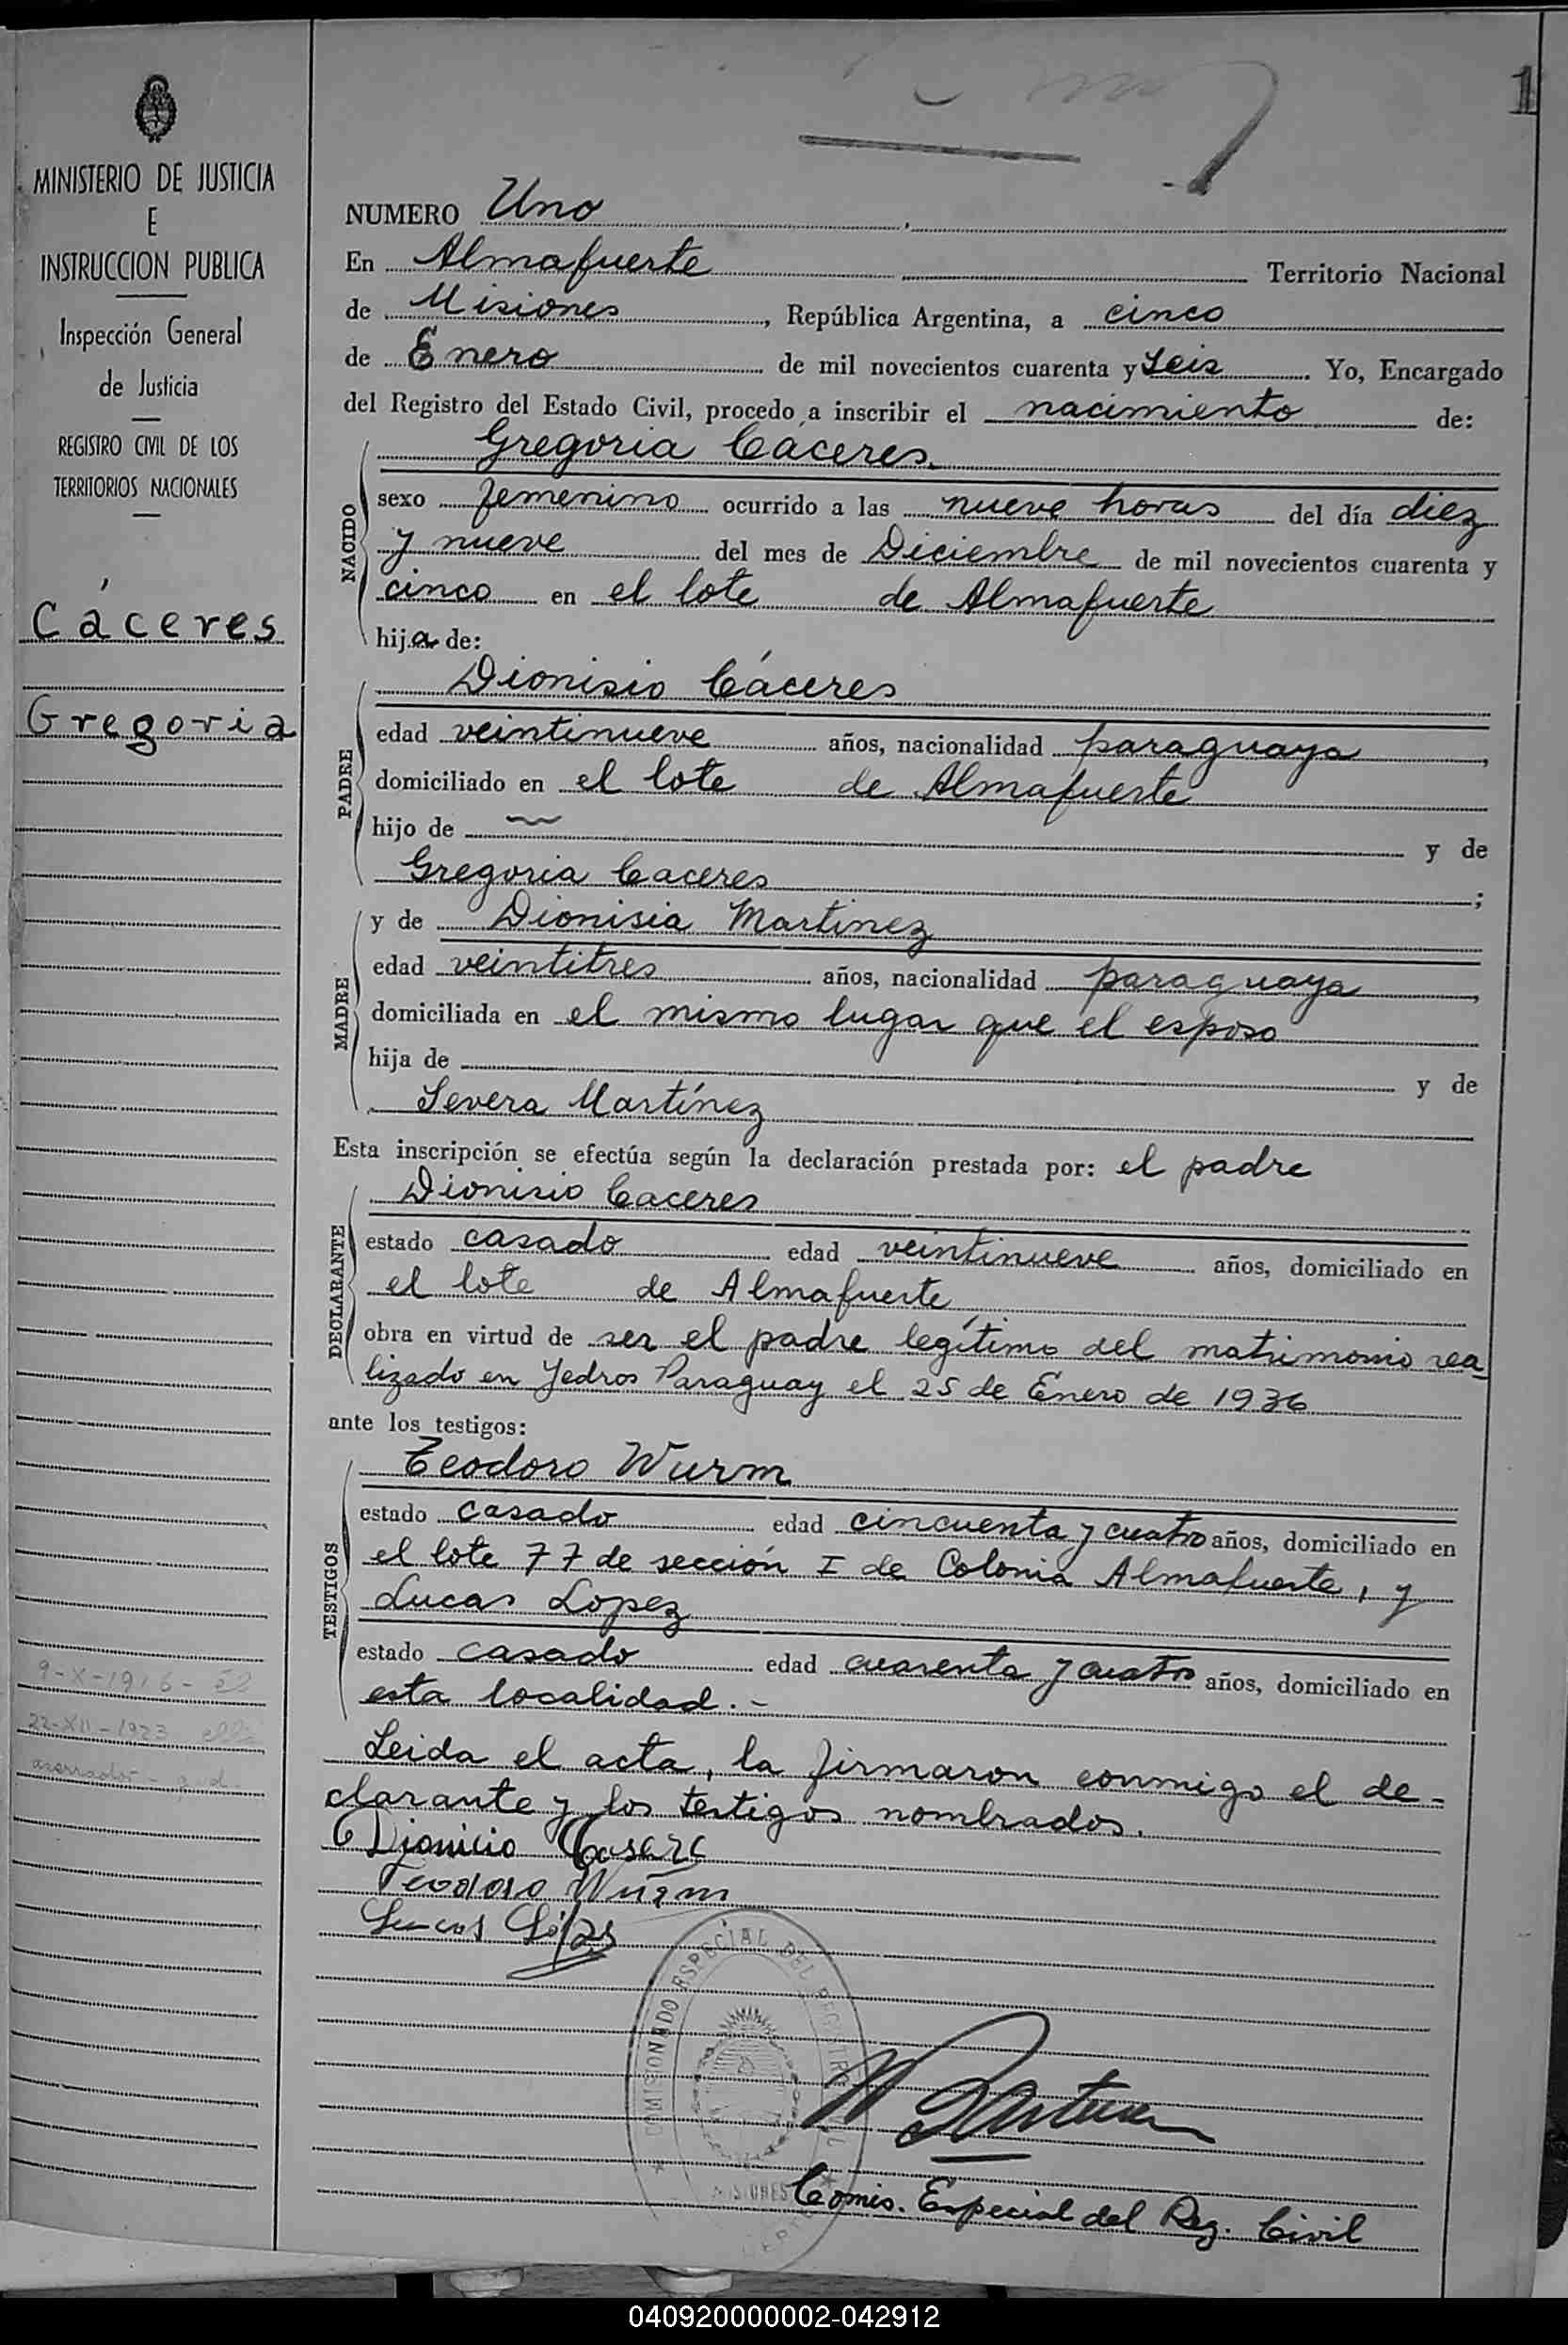 1
MINISTERIO DE JUSTICIA
E
INSTRUCCION PUBLICA
Inspección General
de Justicia
REGISTRO CIVIL DE LOS
TERRITORIOS NACIONALES
Cáceres
Gregoria
9-X-1916 - él
22-XII-1923 ella
aserrador -
NUMERO Uno
En Almafuerte Territorio Nacional
de Misiones, República Argentina, a cinco
de Enero de mil novecientos cuarenta y Seis. Yo, Encargado
del Registro del Estado Civil, procedo a inscribir el nacimiento de:
NACIDO
Gregoria Cáceres.
sexo femenino ocurrido a las nueve horas del día diez
y nueve del mes de Diciembre de mil novecientos cuarenta y
cinco en el lote de Almafuerte
hija de:
PADRE
Dionisio Cáceres
edad veintinueve años, nacionalidad paraguaya,
domiciliado en el lote de Almafuerte
hijo de y de
Gregoria Caceres;
MADRE
y de Dionisia Martinez
edad veintitres años, nacionalidad paraguaya,
domiciliada en el mismo lugar que el esposo
hija de y de
Severa Martínez
Esta inscripción se efectúa según la declaración prestada por: el padre
DECLARANTE
Dionisio Caceres
estado casado edad veintinueve años, domiciliado en
el lote de Almafuerte
obra en virtud de ser el padre legítimo del matrimonio rea
lizado en Yedros Paraguay el 25 de Enero de 1936
ante los testigos:
TESTIGOS
Teodoro Wurm
estado casado edad cincuenta y cuatro años, domiciliado en
el lote 77 de sección I de Colonia Almafuerte, y
Lucas Lopez
estado casado edad cuarenta y cuatro años, domiciliado en
esta localidad.-
Leida el acta, la firmaron conmigo el de-
clarante y los testigos nombrados.
Dionicio Casere
Teodoro Würm
Lucas López
COMISIONADO ESPECIAL DEL REGISTRO CIVIL
MISIONES
Comis. Especial del Reg. Civil
040920000002-042912